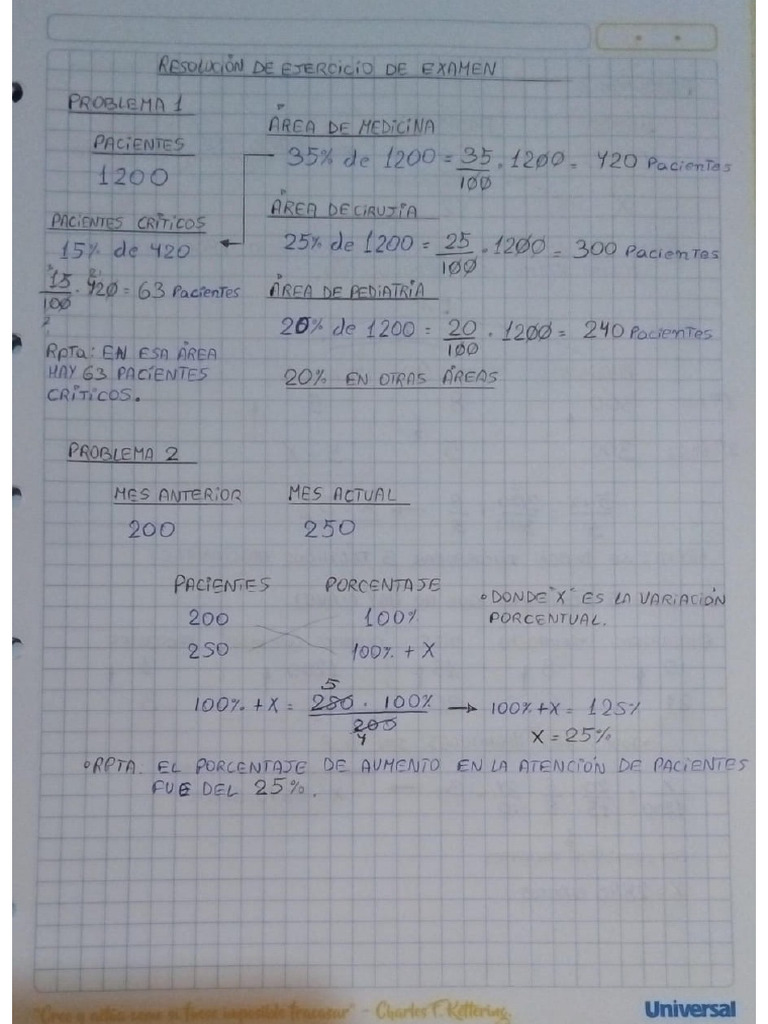 RESOLUCIÓN DE EJERCICIO DE EXAMEN
PROBLEMA 1
PACIENTES
1200
ÁREA DE MEDICINA
35% de 1200 = 35/100 . 1200 = 420 Pacientes
PACIENTES CRÍTICOS
15% de 420
15/100 . 420 = 63 Pacientes
Rpta: EN ESA ÁREA
HAY 63 PACIENTES
CRÍTICOS.
ÁREA DE CIRUJÍA
25% de 1200 = 25/100 . 1200 = 300 Pacientes
ÁREA DE PEDIATRÍA
20% de 1200 = 20/100 . 1200 = 240 Pacientes
20% EN OTRAS ÁREAS
PROBLEMA 2
MES ANTERIOR MES ACTUAL
200 250
PACIENTES PORCENTAJE
200 100%
250 100% + X
• DONDE "X" ES LA VARIACIÓN
PORCENTUAL.
5
100% + X = 250 . 100% / 200 → 100% + X = 125%
4
X = 25%
• RPTA: EL PORCENTAJE DE AUMENTO EN LA ATENCIÓN DE PACIENTES
FUE DEL 25%.
"Cree y actúa como si fuese imposible fracasar" - Charles F. Kettering.
Universal